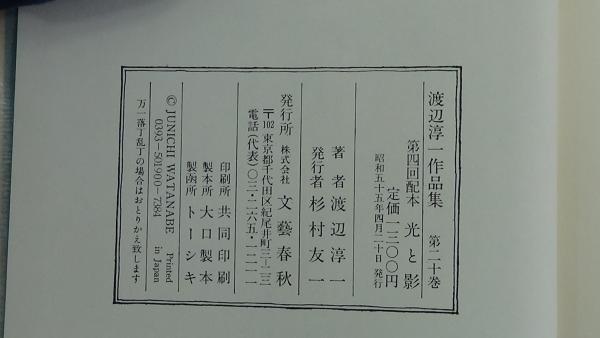 渡辺淳一作品集 第二十巻
第四回配本 光と影
定価一三〇〇円
昭和五十五年四月二十日 発行
著者 渡辺淳一
発行者 杉村友一
発行所 株式会社 文藝春秋
〒102 東京都千代田区紀尾井町三―二三
電話(代表)〇三・二六五・一二一一
印刷所 共同印刷
製本所 大口製本
製函所 トーシキ
© JUNICHI WATANABE Printed
0393-501900-7384 in Japan
万一落丁乱丁の場合はおとりかえ致します